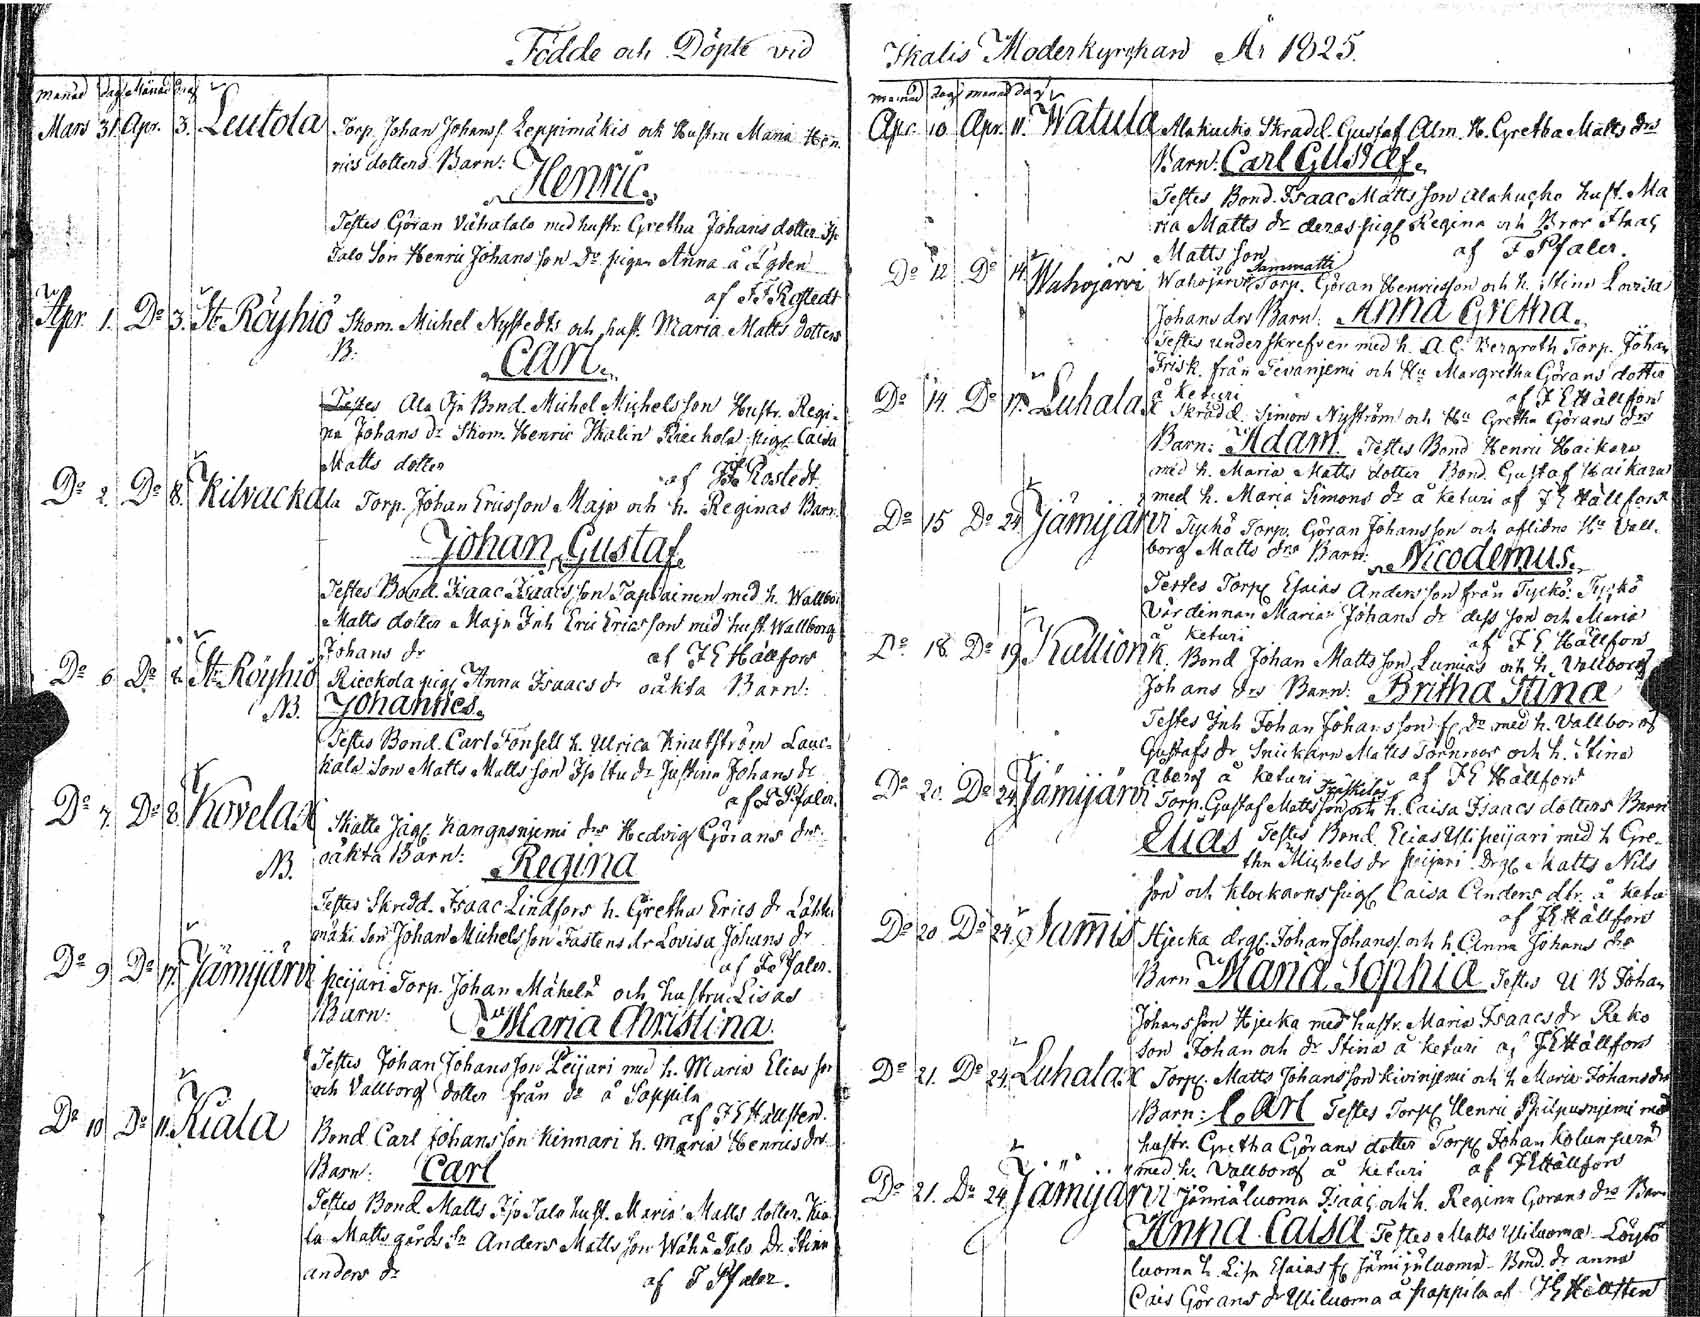 Födde och Döpte vid
månad dag Månad dag
Mars 31 Apr. 3. Leutola Torp. Johan Johans s. Leppimäkis och Hustru Maria Hen-
rics dotters Barn:
Henric.
Testes Göran Vähätalo med hustr. Gretha Johans dotter
Talo Son Henric Johansson Dr pigan Anna å
af F. F. Rostedt
Apr. 1. Do 3. St. Röyhiö Skom. Michel Nystedts och hust. Maria Matts dotters
B.
Carl.
Testes Ala Bond. Michel Michelsson Hustr. Regi-
na Johans dr Skom. Henric Skalin Rieckola pig. Caisa
Matts dotter
af F. F. Rostedt.
Do 2. Do 8. Kilvackala Torp. Johan Ericsson Maja och h. Reginas Barn.
Johan Gustaf.
Testes Bond. Isaac Isaacsson Tapiainen med h. Wallbor
Matts dotter Maja Inh Eric Ericsson med hust. Wallborg
Johans dr af J E Hällfors
Do 6 Do 8. St. Röyhiö Rieckola pig. Anna Isaacs dr oäkta Barn:
NB. Johannes.
Testes Bond. Carl Fonsell h. Ulrica Knutström Lauc-
kala Son Matts Mattsson dr Justina Johans dr
af F Pfaler.
Do 7. Do 8. Kovelax Skatte Jäg. Kangasnjemi drs Hedvig Görans drs
NB. oäkta Barn:
Regina
Testes Skredd. Isaac Lindfors h. Gretha Erics dr Lähte-
mäki Son Johan Michelsson Fastens dr Lovisa Johans dr
af F. Pfaler.
Do 9 Do 17. Jämijärvi Peijari Torp. Johan Mähelä och hustru Lisas
Barn:
Maria Christina.
Testes Johan Johansson Peijari med h. Maria Elias son
och Vallborg dotter från do å Pappila
af J E Hällsten.
Do 10 Do 11. Kiala Bond Carl Johansson Kinnari h. Maria Henrics drs
Barn: Carl
Testes Bond Matts Iso Talo hust. Maria Matts dotter. Kia-
la Mattsgårds Sn Anders Matts son Wähä Talo Dr. Stina
anders dr
af F Pfaler.
Ikalis Moderkyrckan År 1825.
månad dag månad dag
Apr. 10 Apr. 11. Watula Alahucko Skradd. Gustaf Alm. H. Gretha Matts drs
Barn: Carl Gustaf.
Testes Bond. Isaac Matts son Alahucko hust. Ma
ria Matts dr deras pig. Regina och Bror Isaac
Matts son
af F Pfaler.
Do 12 Do 14. Wahojärvi Wahojärvi Sammatti Torp. Göran Henricsson och h. Stina Lovisa
Johans drs Barn. Anna Gretha.
Testes underskrefven med h. A. C. Bergroth Torp. Johan
Frisk från Tevanjemi och Hu Margretha Görans dotter
å Keturi af J E Hällfors
Do 14. Do 17. Luhalax Skradd. Simon Nyström och Hu Gretha Görans drs
Barn: Adam. Testes Bond Henric Haikara
med h. Maria Matts dotter Bond. Gustaf Haikara
med h. Maria Simons dr å Keturi af J E Hällfors
Do 15 Do 24. Jämijärvi Tyckö Torp. Göran Johansson och aflidne Hu Vall-
borg Matts drs Barn: Nicodemus.
Testes Torp. Esaias Andersson från Tyckö: Tyckö
Värdinnan Maria Johans dr dess son och Maria
å Keturi af J E Hällfors
Do 18. Do 19. Kullionk. Bond Johan Matts son Lunias och h. Vallborg
Johans drs Barn: Britha Stina
Testes Inh Johan Johansson fr do med h. Vallborg
Gustafs dr Snickarn Matts Törnroos och h. Stina
Åberg å Keturi af J E Hällfors
Do 20. Do 24. Jämijärvi Torp. Gustaf Matts son och h. Caisa Isaacs dotters Barn
Elias Testes Bond. Elias Ylipeijari med h Gre-
tha Michels dr peijari drg. Matts Nils
son och klockarns pig. Caisa Anders dtr. å Ketu
af J E Hällfors
Do 20 Do 24. Samis Hjecka drg. Johan Johans s. och h. Anna Johans drs
Barn Maria Sophia Testes U B Johan
Johansson Hjecka med hustr. Maria Isaacs dr Reko
son Johan och dr Stina å Keturi af J E Hällfors
Do 21. Do 24. Luhalax Torp. Matts Johansson Kivinjemi och h Maria Johans drs
Barn: Carl Testes Torp. Henric Philpusnjemi med
hustr. Gretha Görans dotter Torp. Johan
med h. Vallborg å Keturi af J E Hällfors
Do 21. Do 24. Jämijärvi Jämiäluoma Isaac och h. Regina Görans drs Barn
Anna Caisa Testes Matts Uiluoma Löytö
luoma h. Lisa Esaias fr Jämijäluoma Bond. dr anna
Cais Görans dr Uiluoma å Pappila af J E Hällsten